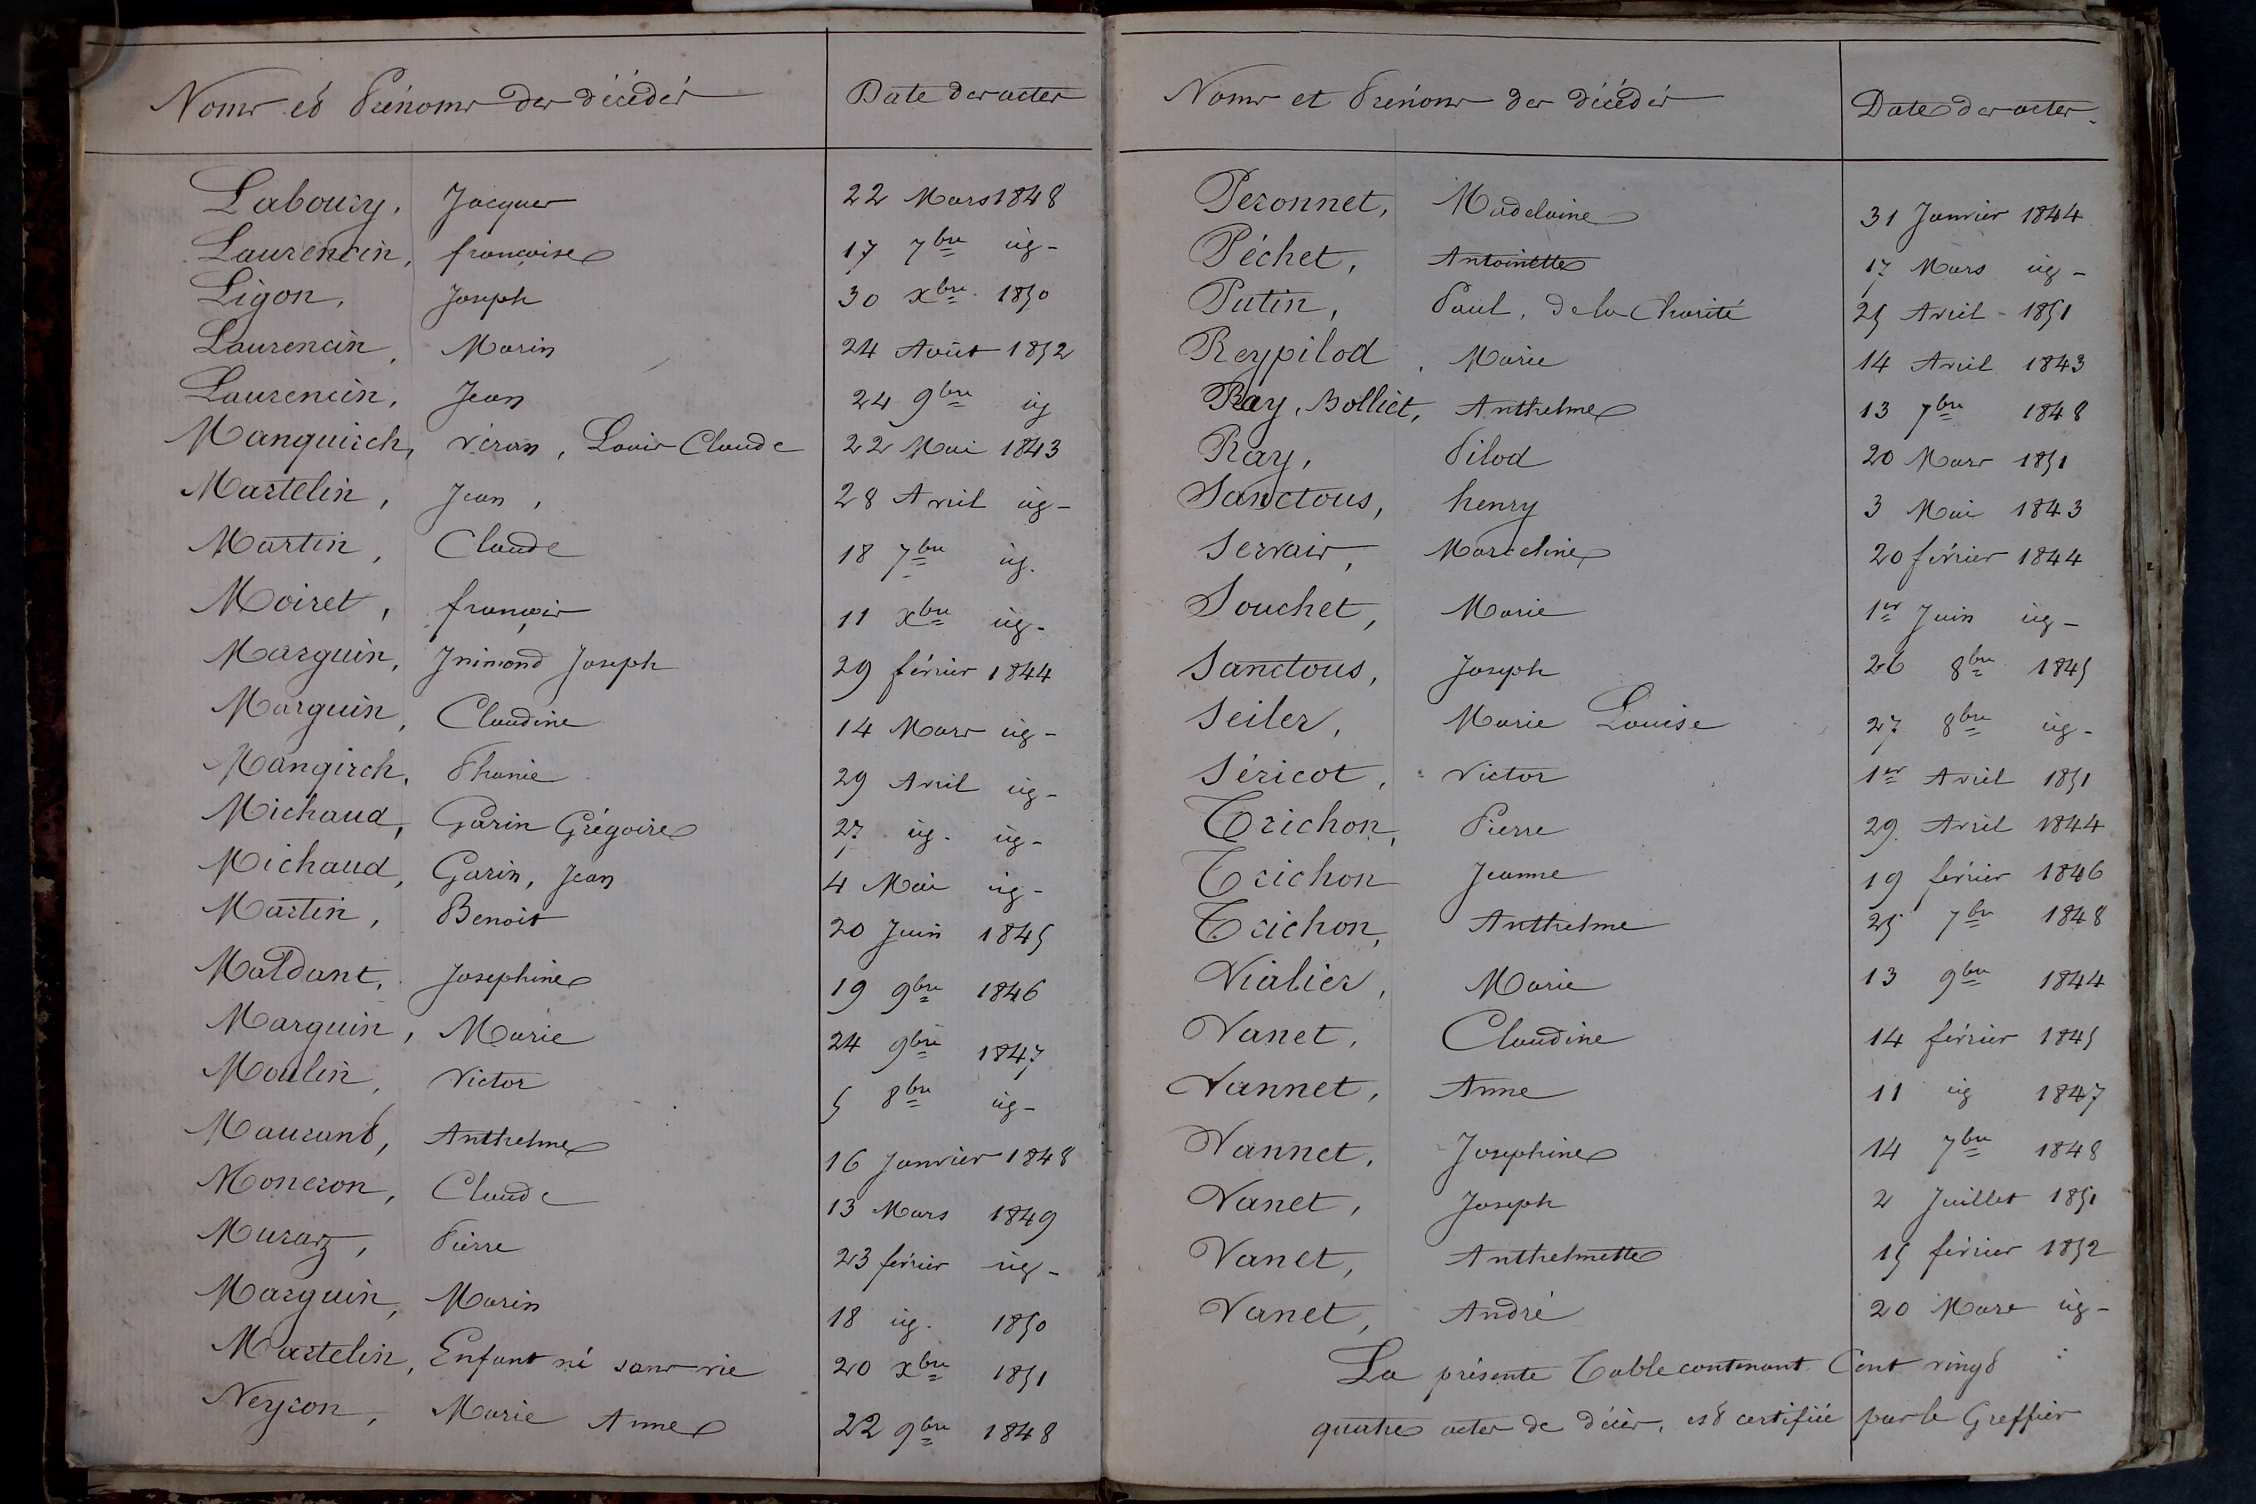 Noms et Prénoms des décédés Date des actes
Laboury, Jacques 22 Mars 1848
Laurencin, françoise 17 7bre id-
Ligon, Joseph 30 xbre 1850
Laurencin, Marin 24 Août 1852
Laurencin, Jean 24 9bre id
Manquirch, véran, Louis Claude 22 Mai 1843
Martelin, Jean, 28 Avril id-
Martin, Claude 18 7bre id.
Moiret, françois 11 xbre id-
Marguin, Jnimond Joseph 29 février 1844
Marguin, Claudine 14 Mars id-
Mangirch, Phanie 29 Avril id-
Michaud, Garin Grégoire 27 id. id-
Michaud, Garin, Jean 4 Mai id-
Martin, Benoit 20 Juin 1845
Maldant, Josephine 19 9bre 1846
Marguin, Marie 24 9bre 1847
Moulin, Victor 5 8bre id-
Maurant, Anthelme 16 Janvier 1848
Moncron, Claude 13 Mars 1849
Murarz, Pierre 23 février id-
Marguin, Marin 18 id. 1850
Martelin, Enfant né sans vie 20 xbre 1851
Neyron, Marie Anne 22 9bre 1848
Noms et Prénoms des décédés Date des actes.
Peronnet, Madelaine 31 Janvier 1844
Péchet, Antoinette 17 Mars id-
Putin, Paul, de la Charité 25 Avril - 1851
Reypilod, Marie 14 Avril 1843
Ray, Bolliet, Anthelme 13 7bre 1848
Ray, Pilod 20 Mars 1851
Sanctous, henry 3 Mai 1843
Servais, Marceline 20 février 1844
Souchet, Marie 1er Juin id-
Sanctous, Joseph 26 8bre 1845
Seiler, Marie Louise 27 8bre id-
Séricot, Victor 1er Avril 1851
Trichon, Pierre 29 Avril 1844
Trichon Jeanne 19 février 1846
Trichon, Anthelme 25 7bre 1848
Vialier, Marie 13 9bre 1844
Vanet, Claudine 14 février 1845
Vannet, Anne 11 id 1847
Vannet, Josephine 14 7bre 1848
Vanet, Joseph 2 Juillet 1851
Vanet, Anthelmette 15 février 1852
Vanet, André 20 Mars id-
La présente Table contenant Cent vingt
quatre actes de décès, est certifiée par le Greffier